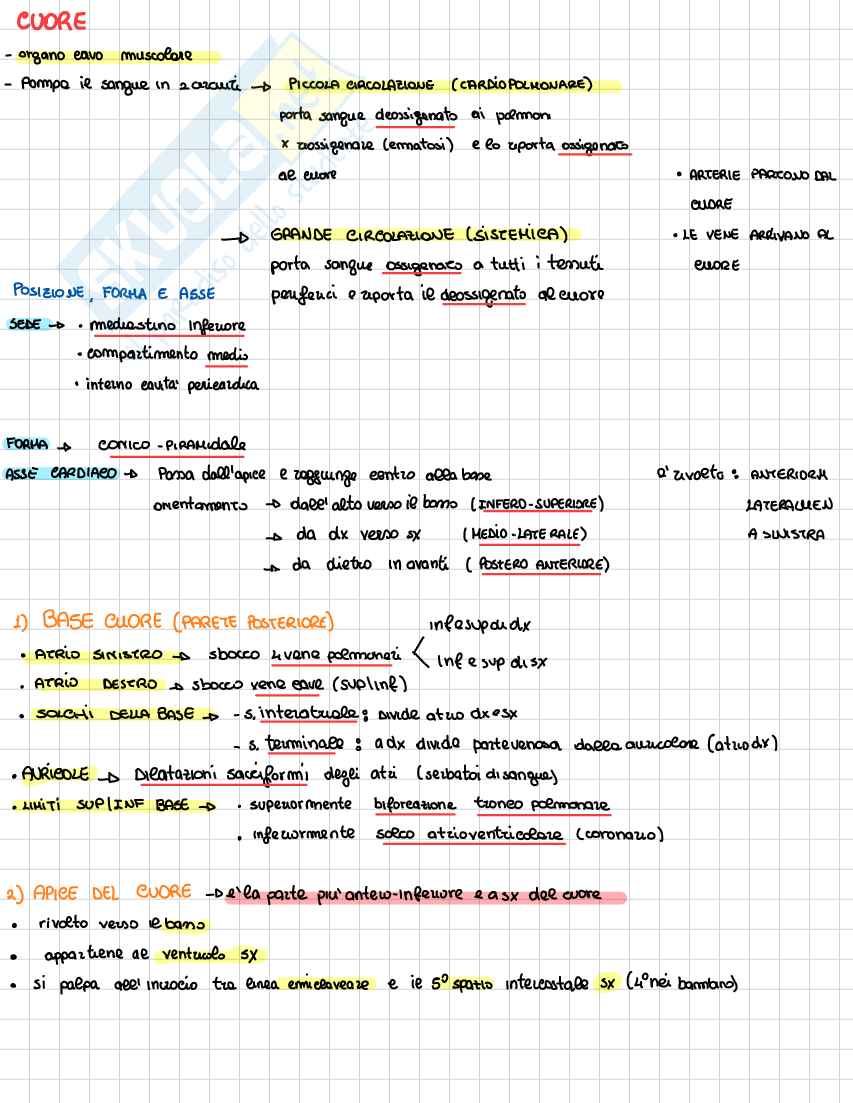 CUORE
- organo cavo muscolare
- Pompa il sangue in 2 circuiti → PICCOLA CIRCOLAZIONE (CARDIOPOLMONARE)
porta sangue deossigenato ai polmoni
x riossigenare (ematosi) e lo riporta ossigenato
al cuore
• ARTERIE PARTONO DAL
CUORE
→ GRANDE CIRCOLAZIONE (SISTEMICA)
• LE VENE ARRIVANO AL
CUORE
porta sangue ossigenato a tutti i tessuti
periferici e riporta il deossigenato al cuore
POSIZIONE, FORMA E ASSE
SEDE → • mediastino inferiore
• compartimento medio
• interno cavità pericardica
FORMA → CONICO-PIRAMIDALE
ASSE CARDIACO → Passa dall'apice e raggiunge centro alla base
orientamento → dall'alto verso il basso (INFERO-SUPERIORE)
→ da dx verso sx (MEDIO-LATERALE)
→ da dietro in avanti (POSTERO ANTERIORE)
è rivolto: ANTERIORM
LATERALMEN
A SINISTRA
1) BASE CUORE (PARETE POSTERIORE)
• ATRIO SINISTRO → sbocco 4 vene polmonari < inf e sup di dx
inf e sup di sx
• ATRIO DESTRO → sbocco vene cave (sup/inf)
• SOLCHI DELLA BASE → - s. interatriale: divide atrio dx e sx
- s. terminale: a dx divide parte venosa dalla auricolare (atrio dx)
• AURICOLE → Dilatazioni sacciformi degli atri (serbatoi di sangue)
• LIMITI SUP/INF BASE → • superiormente biforcazione tronco polmonare
• inferiormente solco atrioventricolare (coronario)
2) APICE DEL CUORE → è la parte più antero-inferiore e a sx del cuore
• rivolto verso il basso
• appartiene al ventricolo sx
• si palpa all'incrocio tra linea emiclaveare e il 5° spazio intercostale sx (4° nei bambino)
SKUOLA.net
paradiso dello studente